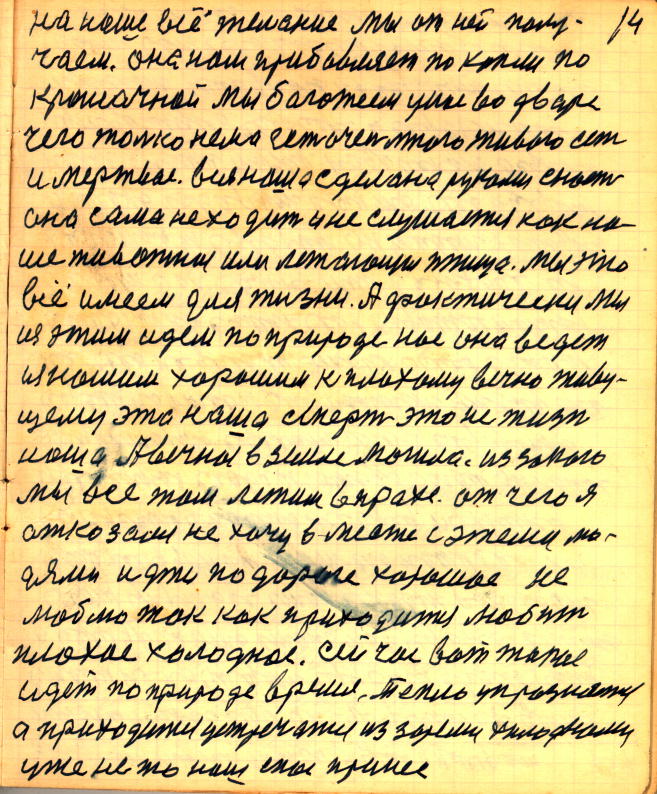 на наше всё желание мы от ней полу- 14
чаем. Она нам прибовляет по капли по
крошачной мы богатеем у нас во дваре
чего толко нема
и мертвое. вся наша сделана руками
она сама не ходит и не слушается как на-
ше животная или летающия птица. Мы это
всё имеем для жизни. А фактически мы
из этим идем по природе нас она ведет
из нашим хорошим к плохому вечно живу-
щему это наша смерт это не жизн
наша А вечноя в земле могила. из за кого
мы все там летим в прахе. от чего я
отказалс не хочу вместе с этеми лю-
дями идти по дороге хорошое не
люблю так как приходится любит
плохое холодное. сейчас вот такое
идет по природе время. Тепло
а приходится устречатся из холодному
уже не то наш